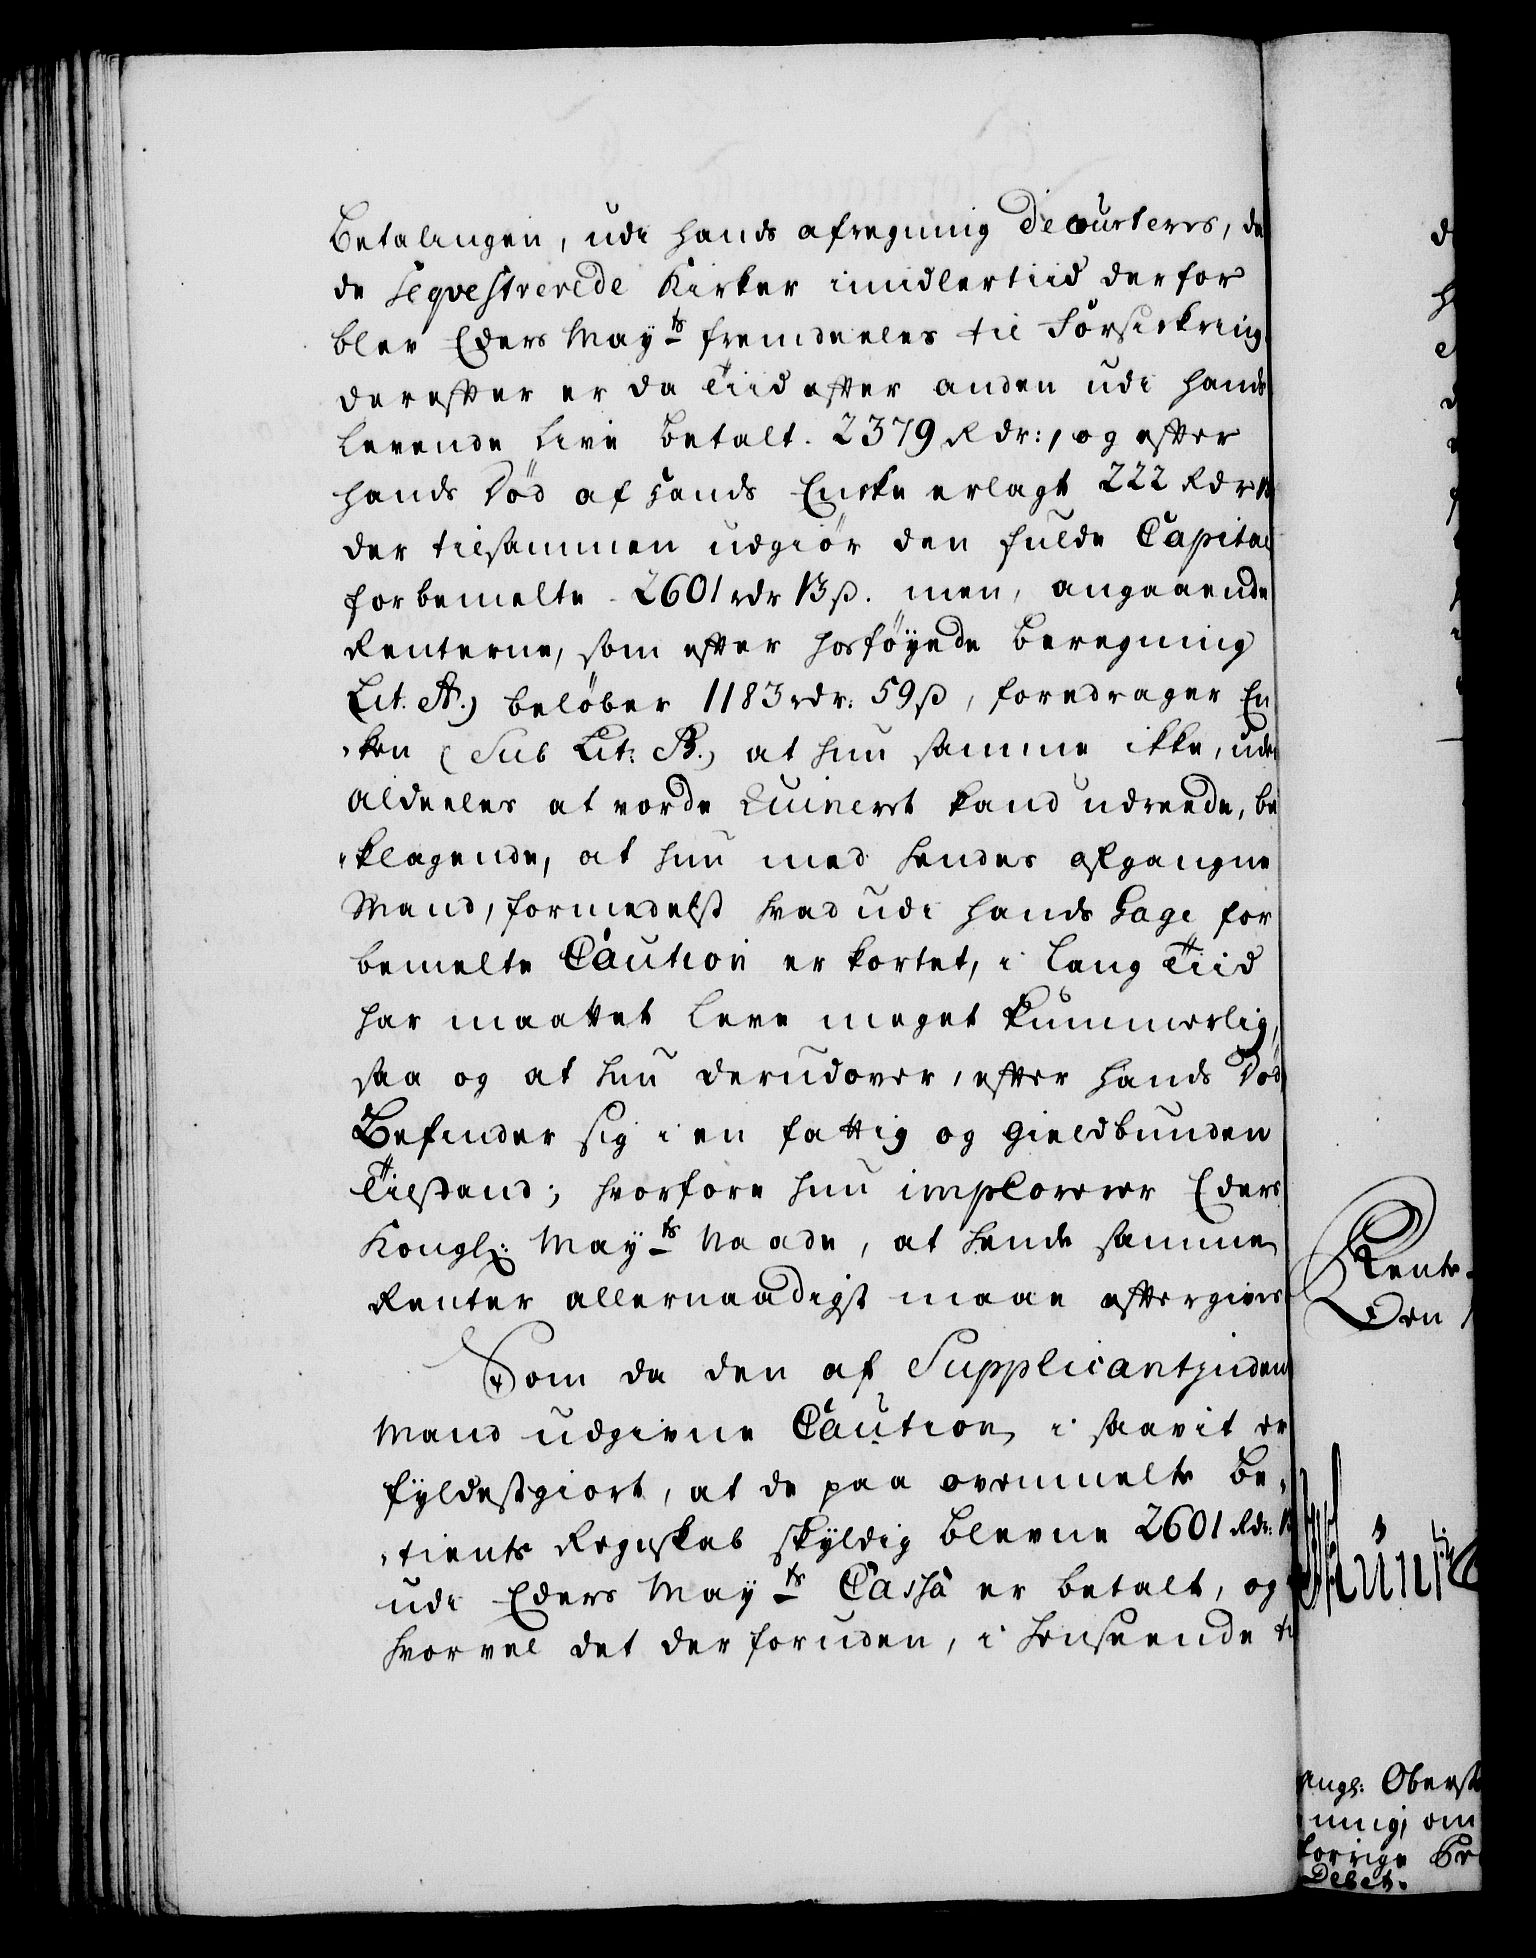 Betalingen, udi hands afregning decourteris, da
de seqvestrerede Kirker imidlertiid derfor
blev Eders May.ts fremdeeles til Forsickring
derefter er da Tiid efter anden udi hands
levende Live betalt. 2379 Rdr:, og efter
hands Død af hands Encke erlagt 222 Rdr 13
der tilsammen udgiør den fulde Capital
forbemelte 2601 rdr 13 ß. men, angaaende
Renterne, som efter hosføyede Beregning
Lit. A.) beløber 1183 rdr: 59 ß, foredrager En
-ken (Sub Lit: B.) at hun samme ikke, uden
aldeeles at vorde Ruineret kand udreede, be
-klagende, at hun med hendes afgangne
Mand, formedelst hvad udi hands Gage for
bemelte Caution er kortet, i lang Tiid
har maattet leve meget kummerlig,
saa og at hun derudover, efter hands Død
Befinder sig i en fattig og gieldbunden
Tilstand; hvorfore hun implorerer Eders
Kongl: May.ts Naade, at hende samme
Renter allernaadigst maae eftergives
Som da den af Supplicantinden
Mand udgivne Caution, i saavit er
fyldestgiort, at de paa ovenmelte Be-
-tients Regnskab skyldig blevne 2601 Rdr: 13
udi Eders May.ts Cassa er betalt, og
hvorvel det der foruden, i henseende ti
Rente-
Den
Oberst
ning, om
forrige
Debet.